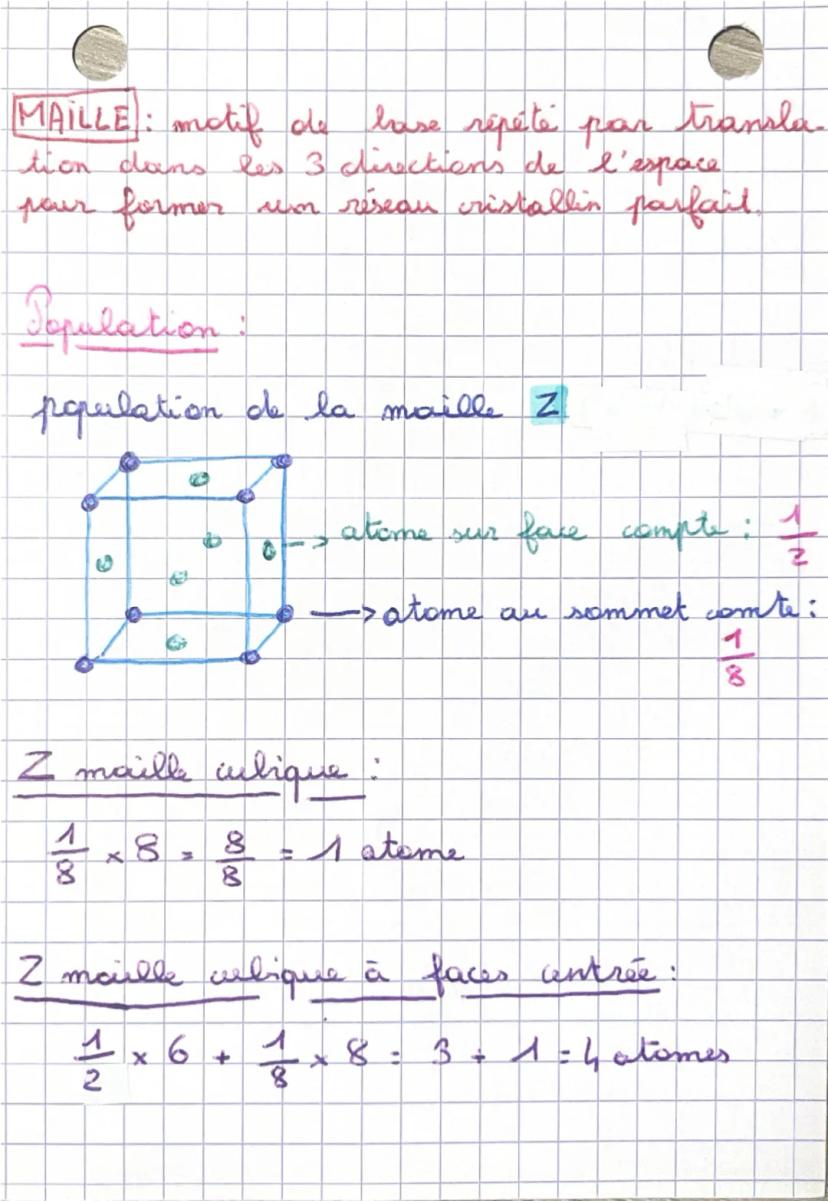 MAILLE : motif de base répété par transla-
tion dans les 3 directions de l'espace
pour former un réseau cristallin parfait.
Population :
population de la maille Z
→ atome sur face compte : 1/2
→ atome au sommet comte :
1/8
Z maille cubique :
1/8 × 8 = 8/8 = 1 atome
Z maille cubique à faces centrée :
1/2 × 6 + 1/8 × 8 = 3 + 1 = 4 atomes